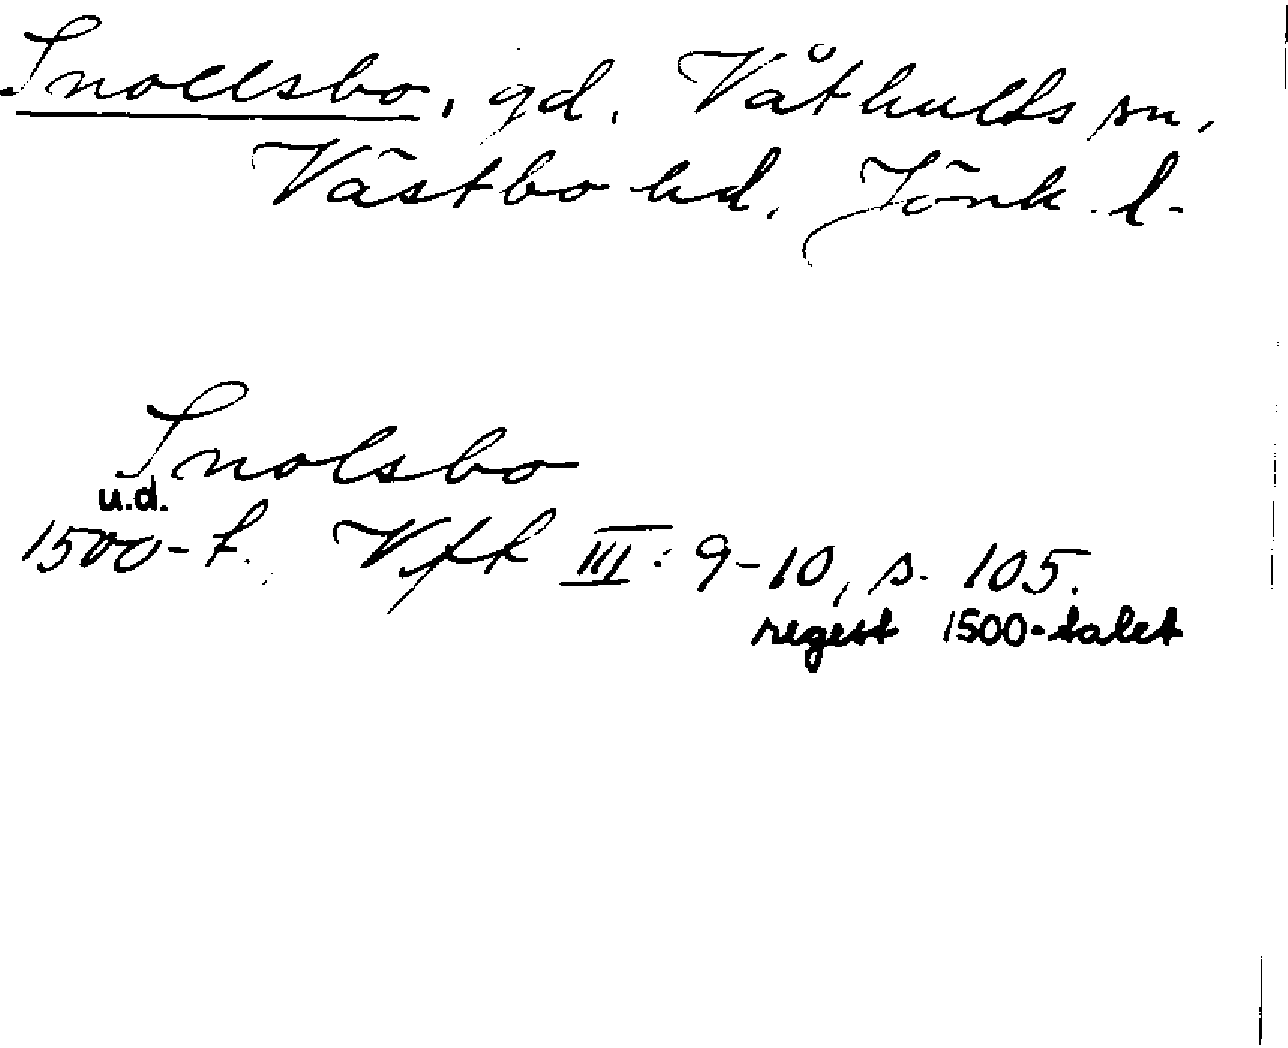 Snollsbo, gd, Våthults sn,
Västbo hd, Jönk. l.
Snolsbo
u.d.
1500-t. Vfk III: 9-10, s. 105.
regest 1500-talet